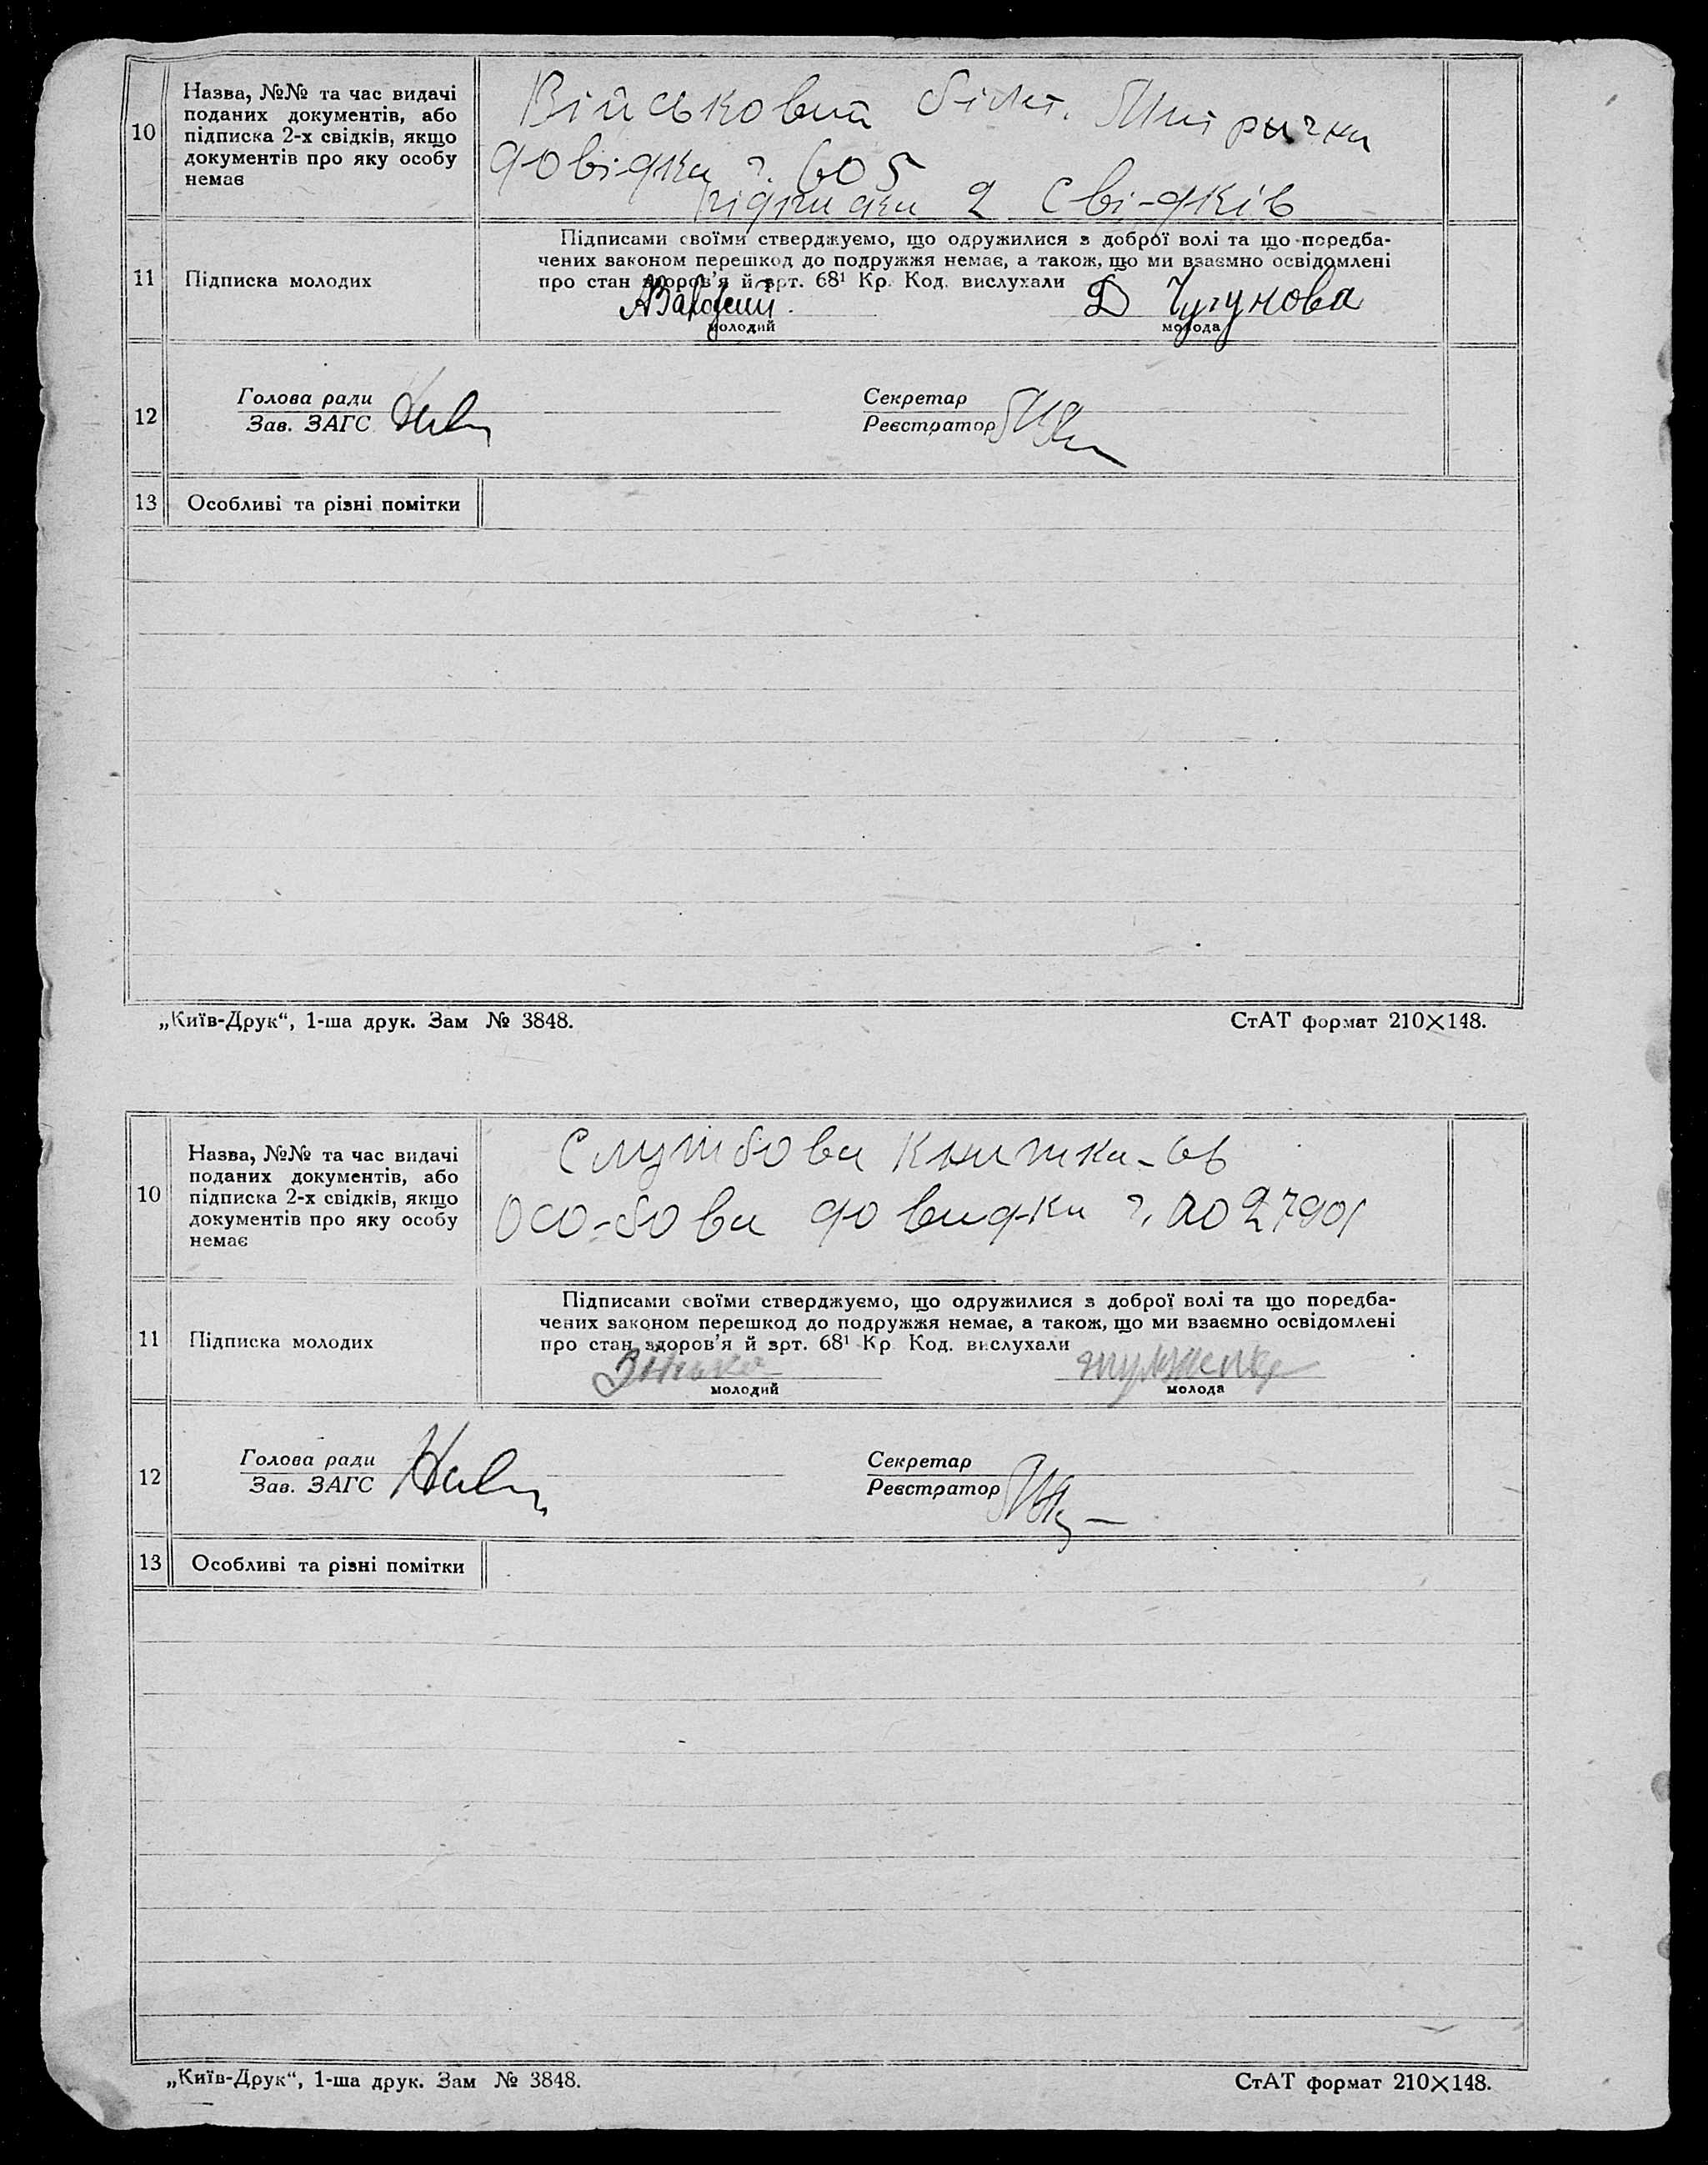 10
Назва, №№ та час видачі
поданих документів, або
підписка 2-х свідків, якщо
документів про яку особу
немає
Військовий білет.
довідка ч. 605
підписка 2 свідків
11
Підписка молодих
Підписами своїми стверджуємо, що одружилися з доброї волі та що передба-
чених законом перешкод до подружжя немає, а також, що ми взаємно освідомлені
про стан здоров'я й арт. 68¹ Кр. Код. вислухали
Д Чугунова
молодий
молода
12
Голова ради
Зав. ЗАГС
Секретар
Реєстратор
13
Особливі та різні помітки
„Київ-Друк“, 1-ша друк. Зам № 3848.
СтАТ формат 210×148.
10
Назва, №№ та час видачі
поданих документів, або
підписка 2-х свідків, якщо
документів про яку особу
немає
Службова книжка-
Осо-бова довидка ч.
11
Підписка молодих
Підписами своїми стверджуємо, що одружилися з доброї волі та що поредба-
чених законом перешкод до подружжя немає, а також, що ми взаємно освідомлені
про стан здоров'я й арт. 68¹ Кр Код. вислухали
молодий
молода
12
Голова ради
Зав. ЗАГС
Секретар
Реєстратор
13
Особливі та різні помітки
„Київ-Друк“, 1-ша друк. Зам № 3848.
СтАТ формат 210×148.